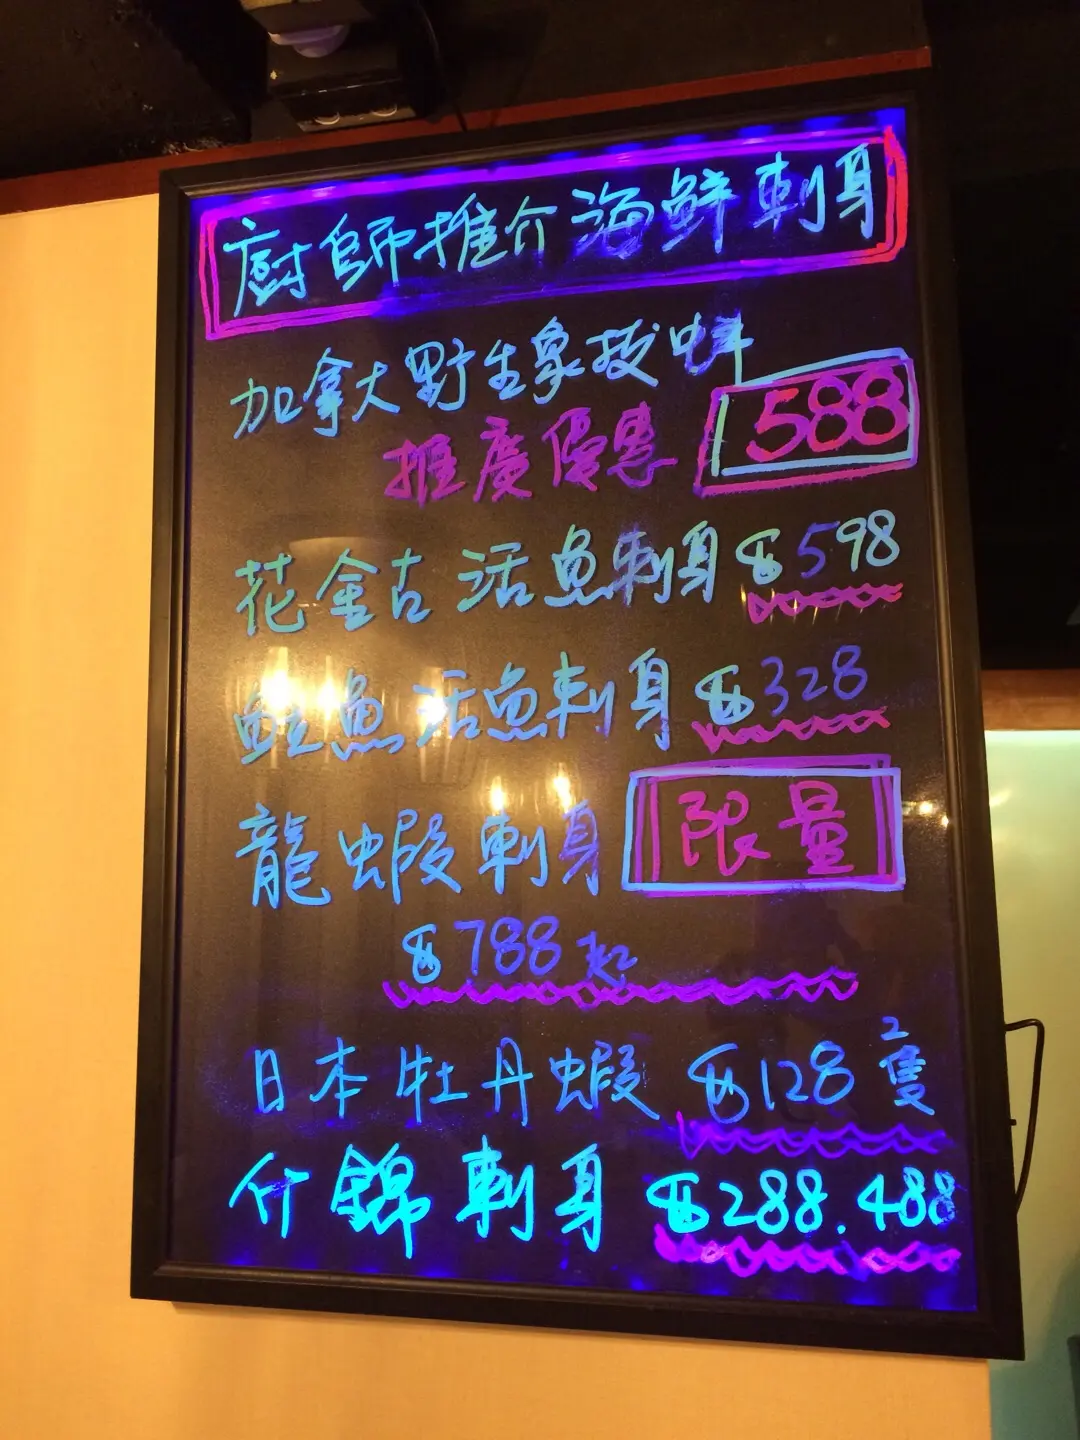 廚師推介海鮮刺身
加拿大野生象拔蚌
推廣優惠 588
花金古活魚刺身 $598
鮭魚活魚刺身 $328
龍蝦刺身 限量
$788起
日本牡丹蝦 $128 2隻
什錦刺身 $288.488